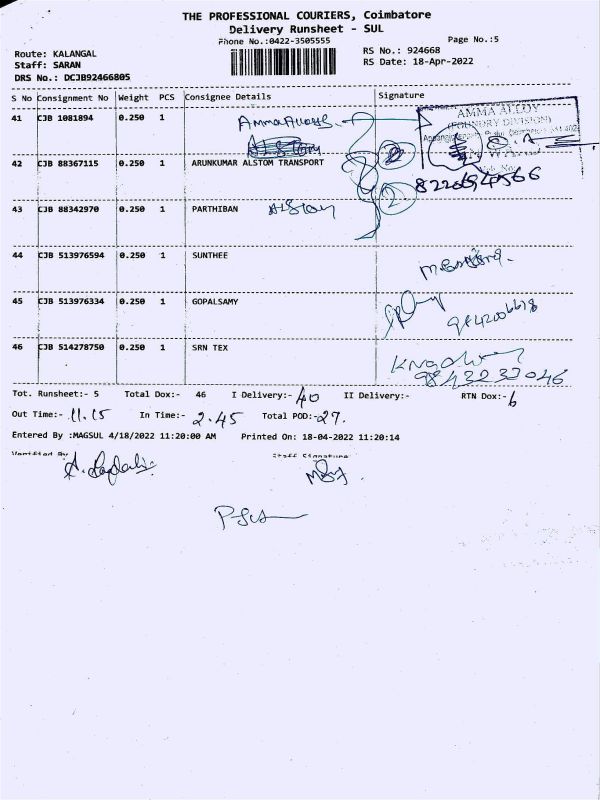 THE PROFESSIONAL COURIERS, Coimbatore
Delivery Runsheet - SUL
Phone No.:0422-3505555
Page No.:5
Route: KALANGAL
RS No.: 924668
Staff: SARAN
RS Date: 18-Apr-2022
DRS No.: DCJB92466805
S No Consignment No Weight PCS Consignee Details Signature
41 CJB 1081894 0.250 1 Amma Alloys
AMMA ALLOY
(FOUNDRY DIVISION)
42 CJB 88367115 0.250 1 ARUNKUMAR ALSTOM TRANSPORT
2
43 CJB 88342970 0.250 1 PARTHIBAN Alstom
2
44 CJB 513976594 0.250 1 SUNTHEE
45 CJB 513976334 0.250 1 GOPALSAMY
9842006678
46 CJB 514278750 0.250 1 SRN TEX
9843237046
Tot. Runsheet:- 5 Total Dox:- 46 I Delivery:- 40 II Delivery:- RTN Dox:- 6
Out Time:- 11.15 In Time:- 2.45 Total POD:- 27.
Entered By :MAGSUL 4/18/2022 11:20:00 AM Printed On: 18-04-2022 11:20:14
Verified By Staff Signature